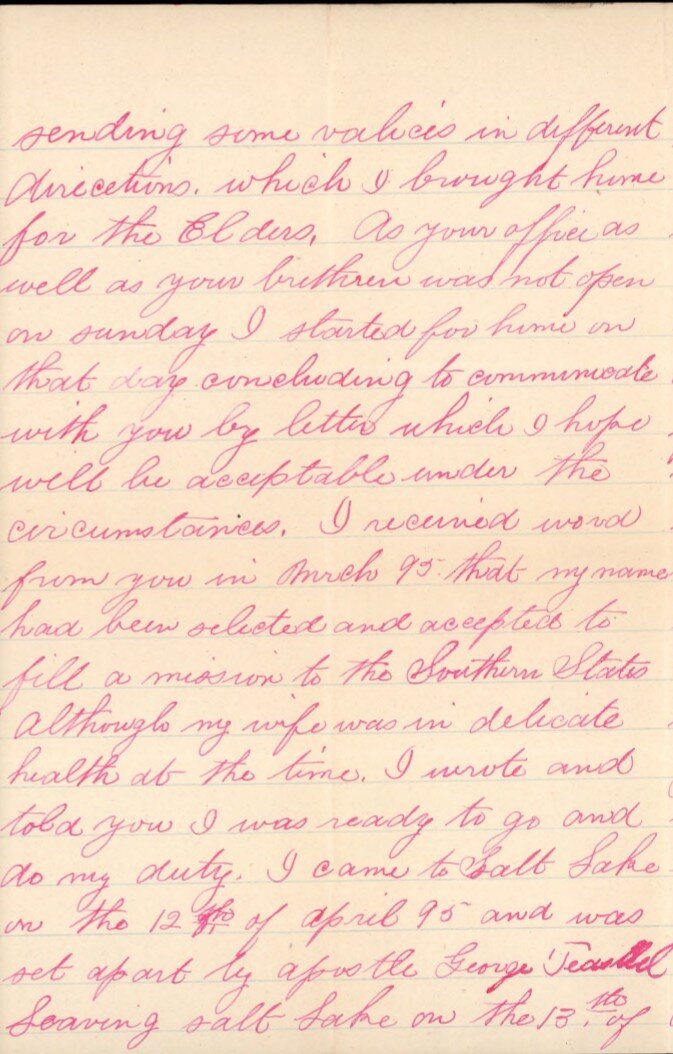 sending some valices in different
directions. which I brought home
for the Elders. As your office as
well as your brethren was not open
on sunday I started for home on
that day concluding to communicate
with you by letter which I hope
will be acceptable under the
circumstances. I received word
from you in March 95 that my name
had been selected and accepted to
fill a mission to the Southern States
Although my wife was in delicate
health at the time. I wrote and
told you I was ready to go and
do my duty. I came to Salt Lake
on the 12 th of April 95 and was
set apart by apostle George Teasdel
Leaving salt Lake on the 13.th of